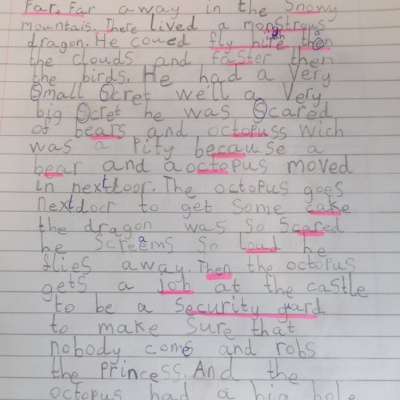 Far, Far away in the Snowy
mountais. There lived a monstrous
dragon. He coued fly hire then
the clouds and faster then
the birds. He had a Very
Small Scret well a Very
big Scret he was Scared
of bears and octopuss wich
was a Pity because a
bear and aoctopus moved
in nextdoor. The octopus goes
nextdoor to get Some cake
the dragon was so Scared
he Screems so Loud he
flies away. Then the octopus
gets a job at the castle
to be a Security gard
to make Sure that
nobody come and robs
the Princess. And the
octopus had a big hole